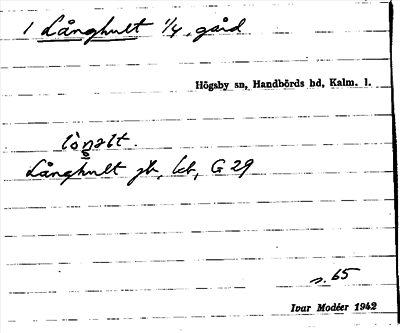 1 Långhult 1/4, gård
Högsby sn, Handbörds hd, Kalm. l.
Långhult jb, kb, G 29
s. 65
Ivar Modéer 1942